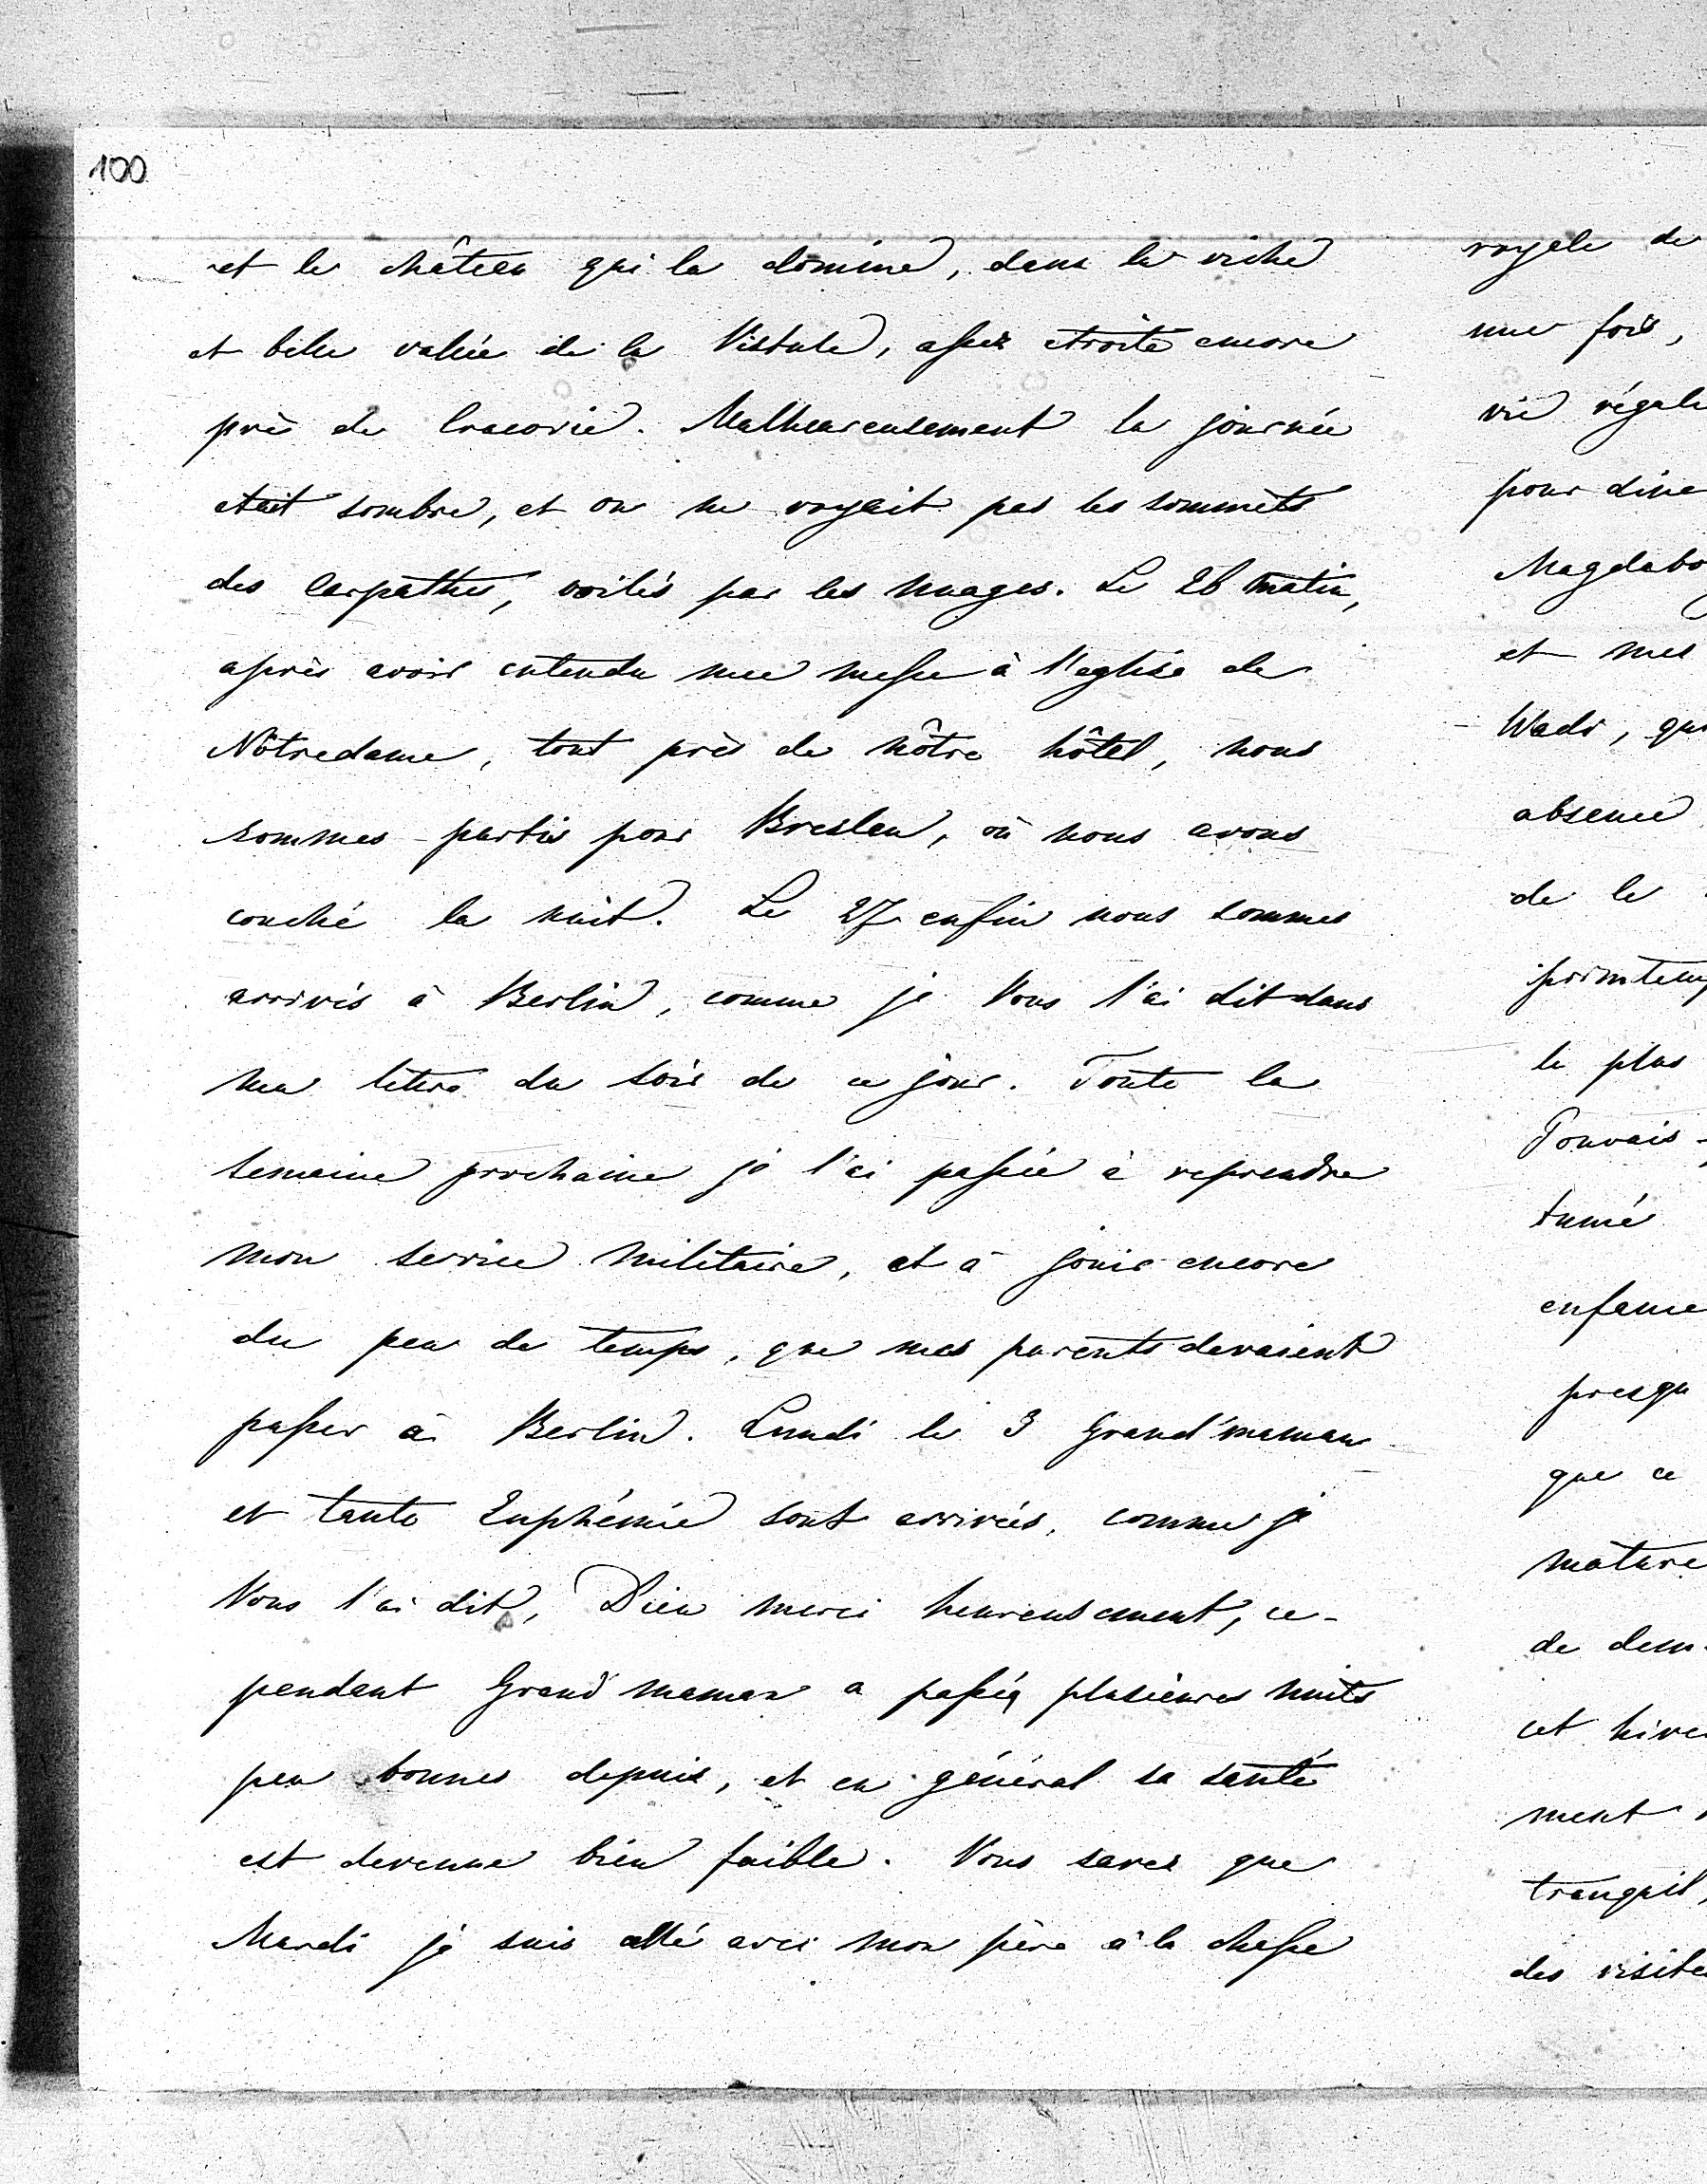 100
et le château qui la domine, dans la riche
et belle vallée de la Vistule, assez etroite encore
près de Cracovie. Malheureusement la journée
etait sombre, et on ne voyait pas les sommets
des Carpathes, voilés par les nuages. Le 26 matin,
après avoir entendu une messe à l'eglise de
Nôtredame, tout près de nôtre hôtel, nous
sommes partis pour Breslau, où nous avons
couché la nuit. Le 27 enfin nous sommes
arrivés à Berlin, comme je Vous l'ai dit dans
ma lettre du soir de ce jour. Toute la
semaine prochaine je l'ai passée à reprendre
mon service militaire, et à jouir encore
du peu de temps, que mes parents devaient
passer à Berlin. Lundi le 3 Grand'maman
et tante Euphémie sont arrivées, comme je
Vous l'ai dit, Dieu merci heureusement, ce-
pendant Grand'maman a passé plusieures nuits
peu bonnes depuis, et en général sa santé
est devenue bien faible. Vous savez que
Mardi je suis allé avec mon père à la chasse
royale de
une fois,
vie régale
pour dine
Magdabo
et mes
Wadi, qui
absence
de le
printemp
le plus
Pouvais-
tumé
enfance
presqu
que ce
mature
de dem
cet hive
ment
tranquil,
des visite